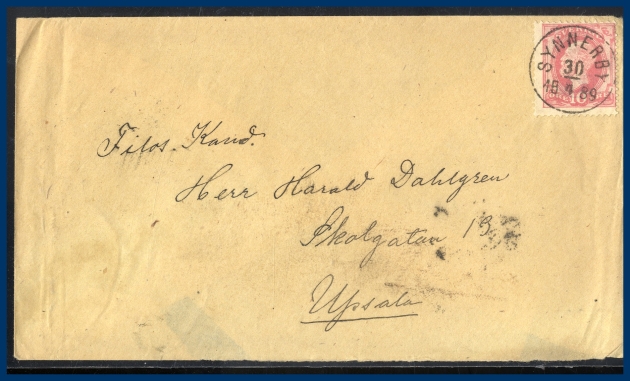 SYNNERBY
30
18 4 89
10
Filos. Kand.
Herr Harald Dahlgren
Skolgatan 13
Upsala